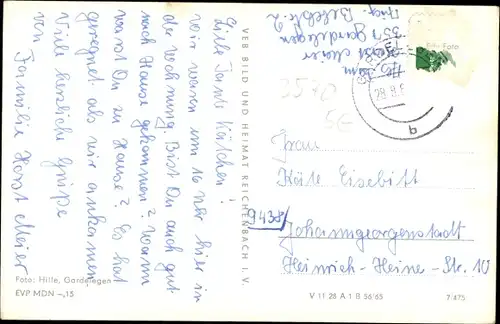 Abs. Fam.
Horst Meier
357 Gardelegen
Liebe Tante Käthchen!
wir waren um 16 Uhr hier in
die Wohnung. Bist Du auch gut
nach Hause gekommen? Wann
warst Du zu Hause? Es hat
geregnet als wir ankamen
Viele herzliche Grüße
von Familie Horst Meier
VEB BILD UND HEIMAT REICHENBACH I. V.
Foto: Hille, Gardelegen
EVP MDN –,15
28.9.6
q
3570
Frau
Käte Eisebitt
9438/
Johanngeorgenstadt
Heinrich-Heine-Str. 10
V 11 28 A 1 B 56/65
7/475